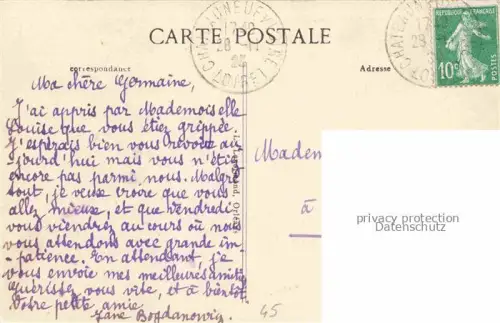 CARTE POSTALE
correspondance
Adresse
RÉPUBLIQUE FRANÇAISE
10c
POSTES
Ma chère Germaine,
J'ai appris par Mademoiselle
Louise que vous étiez grippée.
J'espérais bien vous revoir au-
jourd'hui mais vous n'étiez
encore pas parmi nous. Malgré
tout, je veux croire que vous
allez mieux, et que vendredi
vous viendrez au cours où nous
vous attendons avec grande im-
patience. En attendant, je
vous envoie mes meilleures amitiés
Guérissez vous vite, et à bientôt
Votre petite amie
Jane Bogdanowig
Madem
à
privacy protection
Datenschutz
45